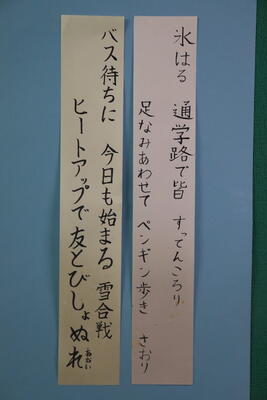 氷はる 通学路で皆 すってんころり
足なみあわせて ペンギン歩き さおり
バス待ちに 今日も始まる 雪合戦
ヒートアップで友とびしょぬれ あおい